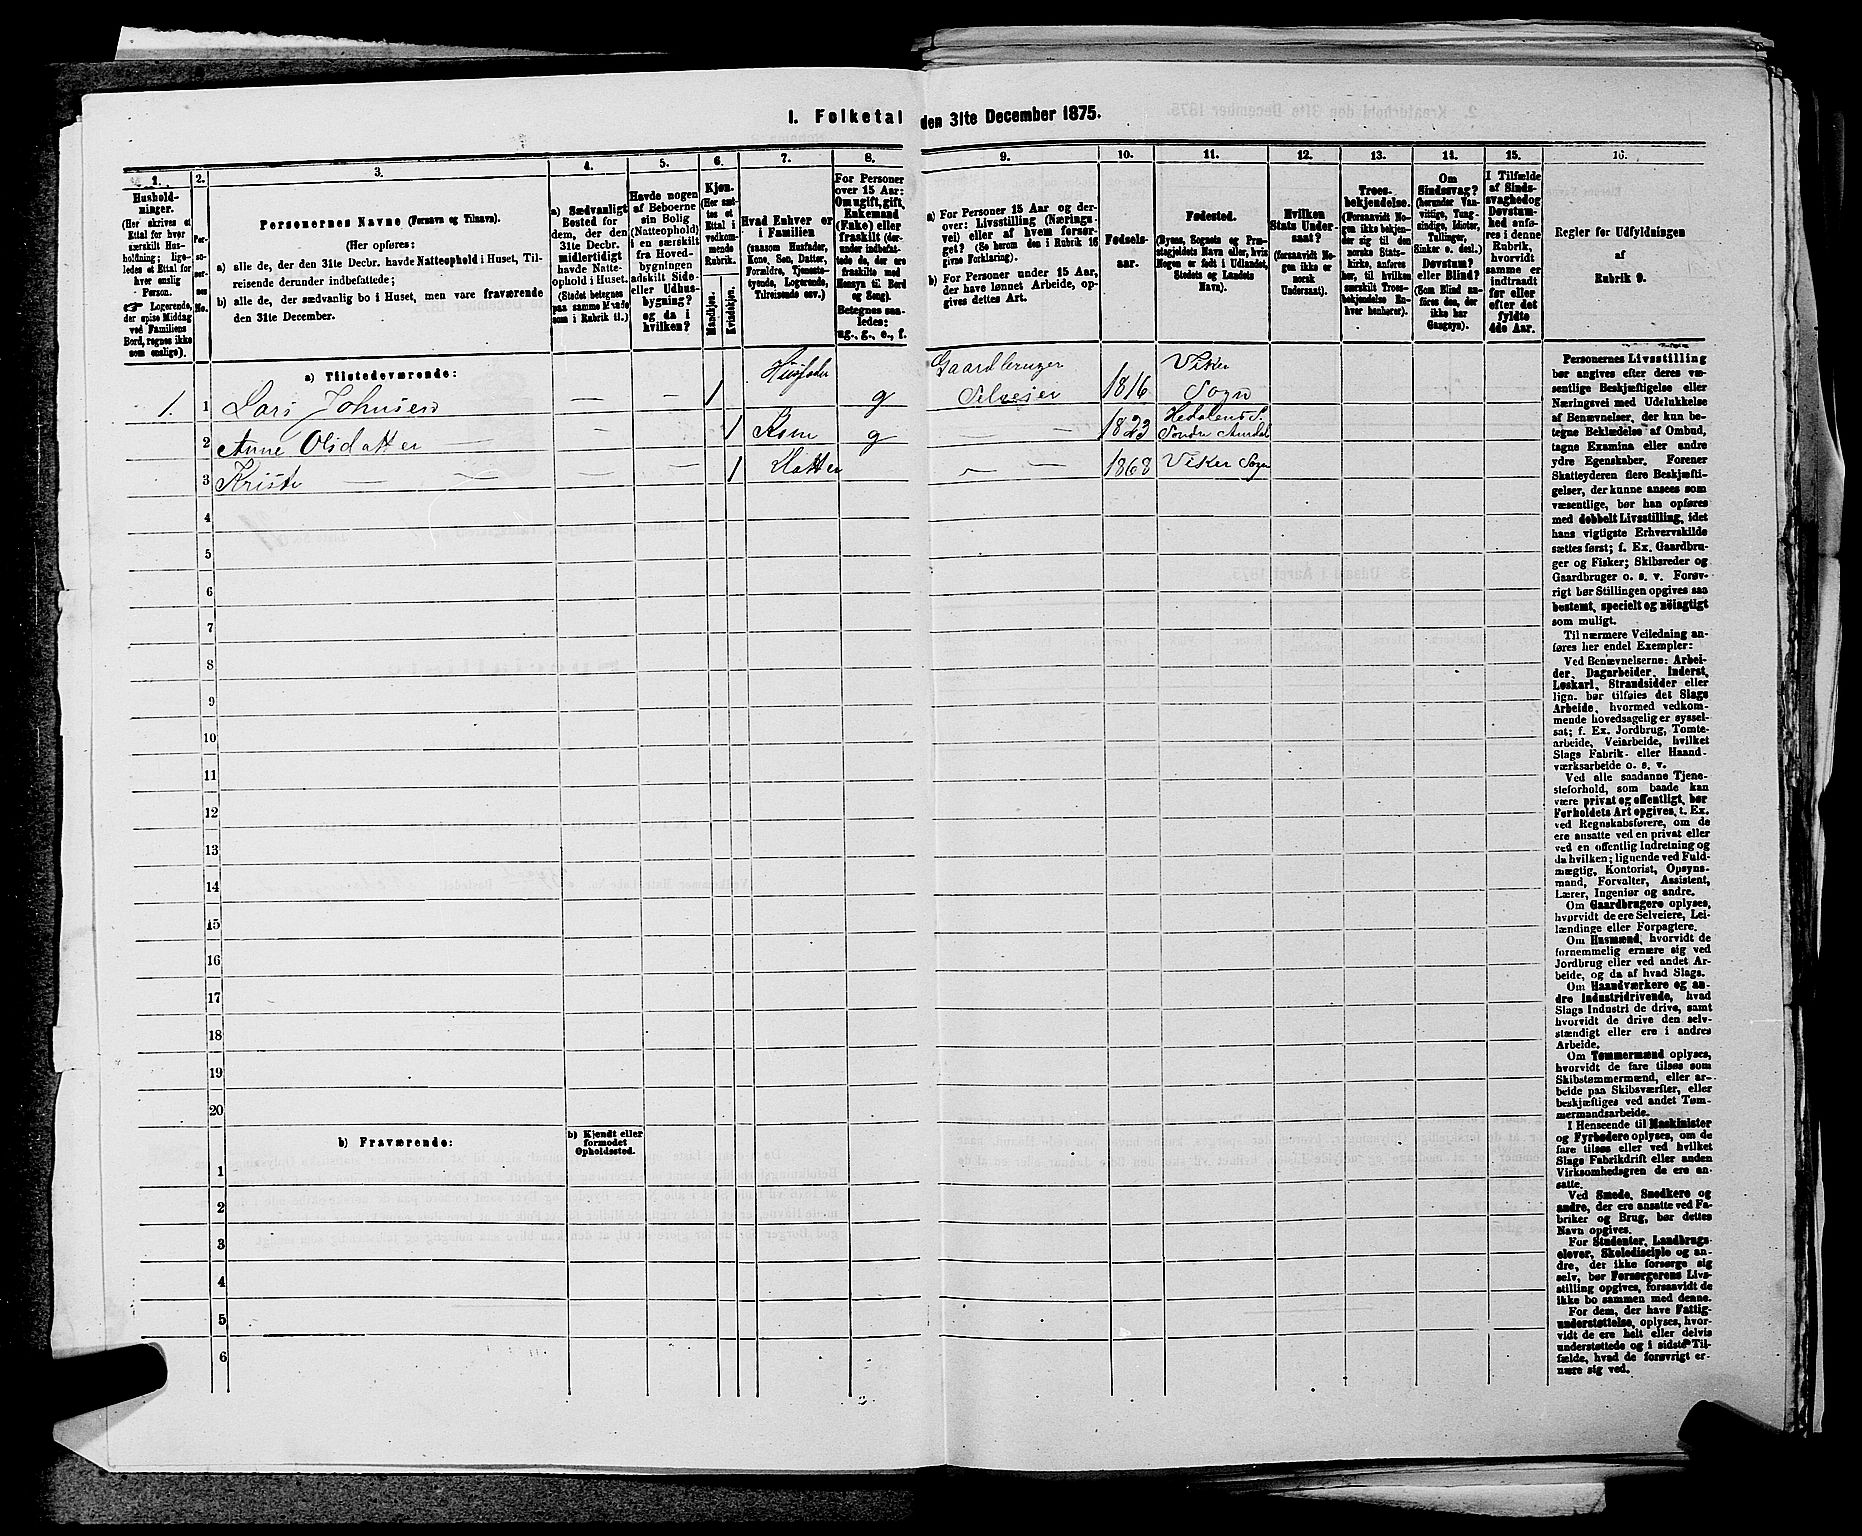 1. Folketal den 31te December 1875.
1. 2. 3. 4. 5. 6. 7. 8. 9. 10. 11. 12. 13. 14. 15. 16.
Hushold-
ninger.
(Her skrives et
Ettal for hver
særskilt Hus-
holdning; lige-
ledes et Ettal for
hver enslig
Person.
☞ Logerende,
der spise Middag
ved Familiens
Bord, regnes ikke
som enslige).
Per-
so-
ner-
nes
No.
Personernes Navne (Fornavn og Tilnavn).
(Her opføres:
a) alle de, der den 31te Decbr. havde Natteophold i Huset, Til-
reisende derunder indbefattede;
b) alle de, der sædvanlig bo i Huset, men vare fraværende
den 31te December.
a) Sædvanligt
Bosted for
dem, der den
31te Decbr.
midlertidigt
havde Natte-
ophold i Huset.
(Stedet betegnes
paa samme Maade
som i Rubrik 11.)
Havde nogen
af Beboerne
sin Bolig
(Natteophold)
i en særskilt
fra Hoved-
bygningen
adskilt Side-
eller Udhus-
bygning?
og da i
hvilken?
Kjøn.
(Her sæt-
tes et
Ettal i
vedkom-
mende
Rubrik.
Mandkjøn.
Kvindekjøn.
Hvad Enhver er
i Familien
(saasom Husfader,
Kone, Søn, Datter,
Forældre, Tjeneste-
tyende, Logerende,
Tilreisende osv.)
For Personer
over 15 Aar:
Om ugift, gift,
Enkemand
(Enke) eller
fraskilt (der-
under indbefat-
tede de, der ere
fraskilte med
Hensyn til Bord
og Seng).
Betegnes saa-
ledes:
ug., g., e., f.
a) For Personer 15 Aar og der-
over: Livsstilling (Nærings-
vei) eller af hvem forsør-
get? (Se herom den i Rubrik 16
givne Forklaring).
b) For Personer under 15 Aar,
der have lønnet Arbeide, op-
gives dettes Art.
Fødsels-
aar.
Fødested.
(Byens, Sognets og Præ-
stegjeldets Navn eller, hvis
Nogen er født i Udlandet,
Stedets og Landets
Navn).
Hvilken
Stats Under-
saat?
(forsaavidt No-
gen ikke er
norsk
Undersaat).
Troes-
bekjendelse.
(Forsaavidt No-
gen ikke bekjen-
der sig til den
norske Stats-
kirke, anføres
her, til hvilken
særskilt Troes-
bekjendelse En-
hver henhører).
Om
Sindssvag?
(herunder Van-
vittige, Tung-
sindige, Idioter,
Tullinger,
Sinker o. desl.)
Døvstum?
eller Blind?
(Som Blind an-
føres den, der
ikke har
Gangsyn).
I Tilfælde
af Sinds-
svaghed og
Døvstum-
hed anfø-
res i denne
Rubrik,
hvorvidt
samme er
indtraadt
før eller
efter det
fyldte
4de Aar.
Regler for Udfyldningen
af
Rubrik 9.
a) Tilstedeværende:
1. 1 Lars Johnsen — — 1 Husfader g Gaardbruger Selveier 1816 Viker Sogn
2 Anne Olsdatter — — 1 Kone g — — 1823 Hedalens S. Søndre Aurdal
3 Kristi — — — — 1 Datter — — 1868 Viker Sogn
4
5
6
7
8
9
10
11
12
13
14
15
16
17
18
19
20
b) Fraværende:
b) Kjendt eller
formodet
Opholdssted.
1
2
3
4
5
6
Personernes Livsstilling
bør angives efter deres væ-
sentlige Beskjæftigelse eller
Næringsvei med Udelukkelse
af Benævnelser, der kun be-
tegne Beklædelse af Ombud,
tagne Examina eller andre
ydre Egenskaber. Forener
Skatteyderen flere Beskjæfti-
gelser, der kunne ansees som
væsentlige, bør han opføres
med dobbelt Livsstilling, idet
hans vigtigste Erhvervskilde
sættes først; f. Ex. Gaardbru-
ger og Fisker; Skibsreder og
Gaardbruger o. s. v. Forøv-
rigt bør Stillingen opgives saa
bestemt, specielt og nöiagtigt
som muligt.
Til nærmere Veiledning an-
føres her endel Exempler:
Ved Benævnelserne: Arbei-
der, Dagarbeider, Inderst,
Løskarl, Strandsidder eller
lign. bør tilføies det Slags
Arbeide, hvormed vedkom-
mende hovedsagelig er syssel-
sat; f. Ex. Jordbrug, Tomte-
arbeide, Veiarbeide, hvilket
Slags Fabrik- eller Haand-
værksarbeide o. s. v.
Ved alle saadanne Tjene-
steforhold, som baade kan
være privat og offentligt, bør
Forholdets Art opgives, t. Ex.
ved Regnskabsførere, om de
ere ansatte ved en privat eller
ved en offentlig Indretning og
da hvilken; lignende ved Fuld-
mægtig, Kontorist, Opsyns-
mand, Forvalter, Assistent,
Lærer, Ingeniør og andre.
Om Gaardbrugere oplyses,
hvorvidt de ere Selveiere, Lei-
lændinge eller Forpagtere.
Om Husmænd, hvorvidt de
fornemmelig ernære sig ved
Jordbrug eller ved andet Ar-
beide, og da af hvad Slags.
Om Haandværkere og an-
dre Industridrivende, hvad
Slags Industri de drive, samt
hvorvidt de drive den selv-
stændigt eller ere i andres
Arbeide.
Om Tømmermænd oplyses,
hvorvidt de fare tilsøs som
Skibstømmermænd, eller ar-
beide paa Skibsværfter, eller
beskjæftiges ved andet Tøm-
mermandsarbeide.
I Henseende til Maskinister
og Fyrbødere oplyses, om de
fare tilsøs eller ved hvilket
Slags Fabrikdrift eller anden
Virksomhedsgren de ere an-
satte.
Ved Smede, Snedkere og
andre, der ere ansatte ved Fa-
briker og Brug, bør dettes
Navn opgives.
For Studenter, Landbrugs-
elever, Skoledisciple og an-
dre, der ikke forsørge sig
selv, bør Forsørgerens Livs-
stilling opgives, forsaavidt de
ikke bo sammen med denne.
For dem, der have Fattig-
understøttelse, oplyses, hvor-
vidt de ere helt eller delvis
understøttede og i sidste Til-
fælde, hvad de forøvrigt er-
nære sig ved.